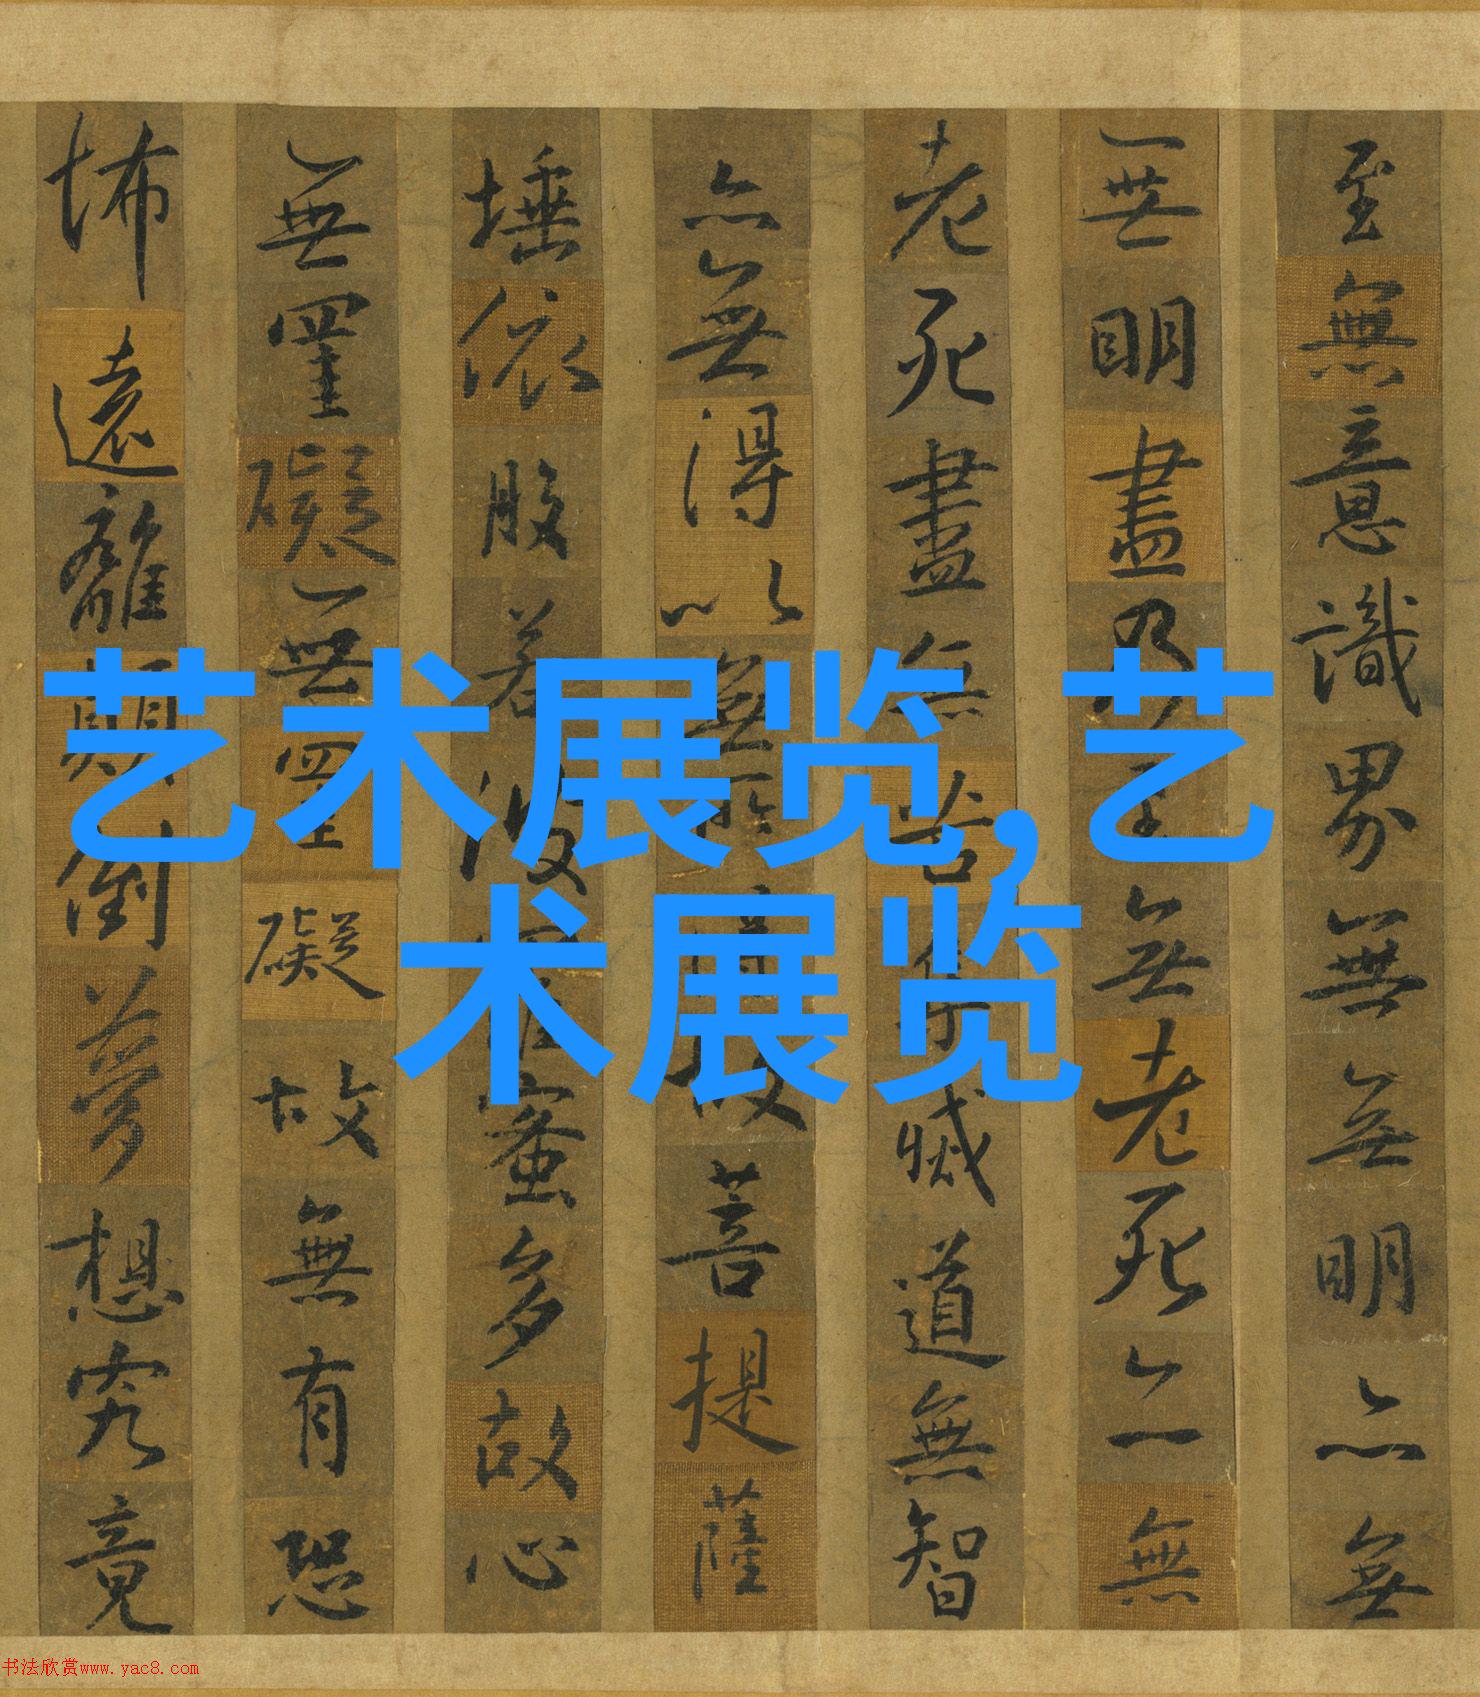 至無意識界無無明亦無
無明盡乃至無老死亦無
老死盡無苦集滅道無智
亦無得以無所得故菩提薩
埵依般若波羅蜜多故心
無罣礙無罣礙故無有恐
怖遠離顛倒夢想究竟
艺术展览,艺
术展览
书法欣赏www.yac8.com